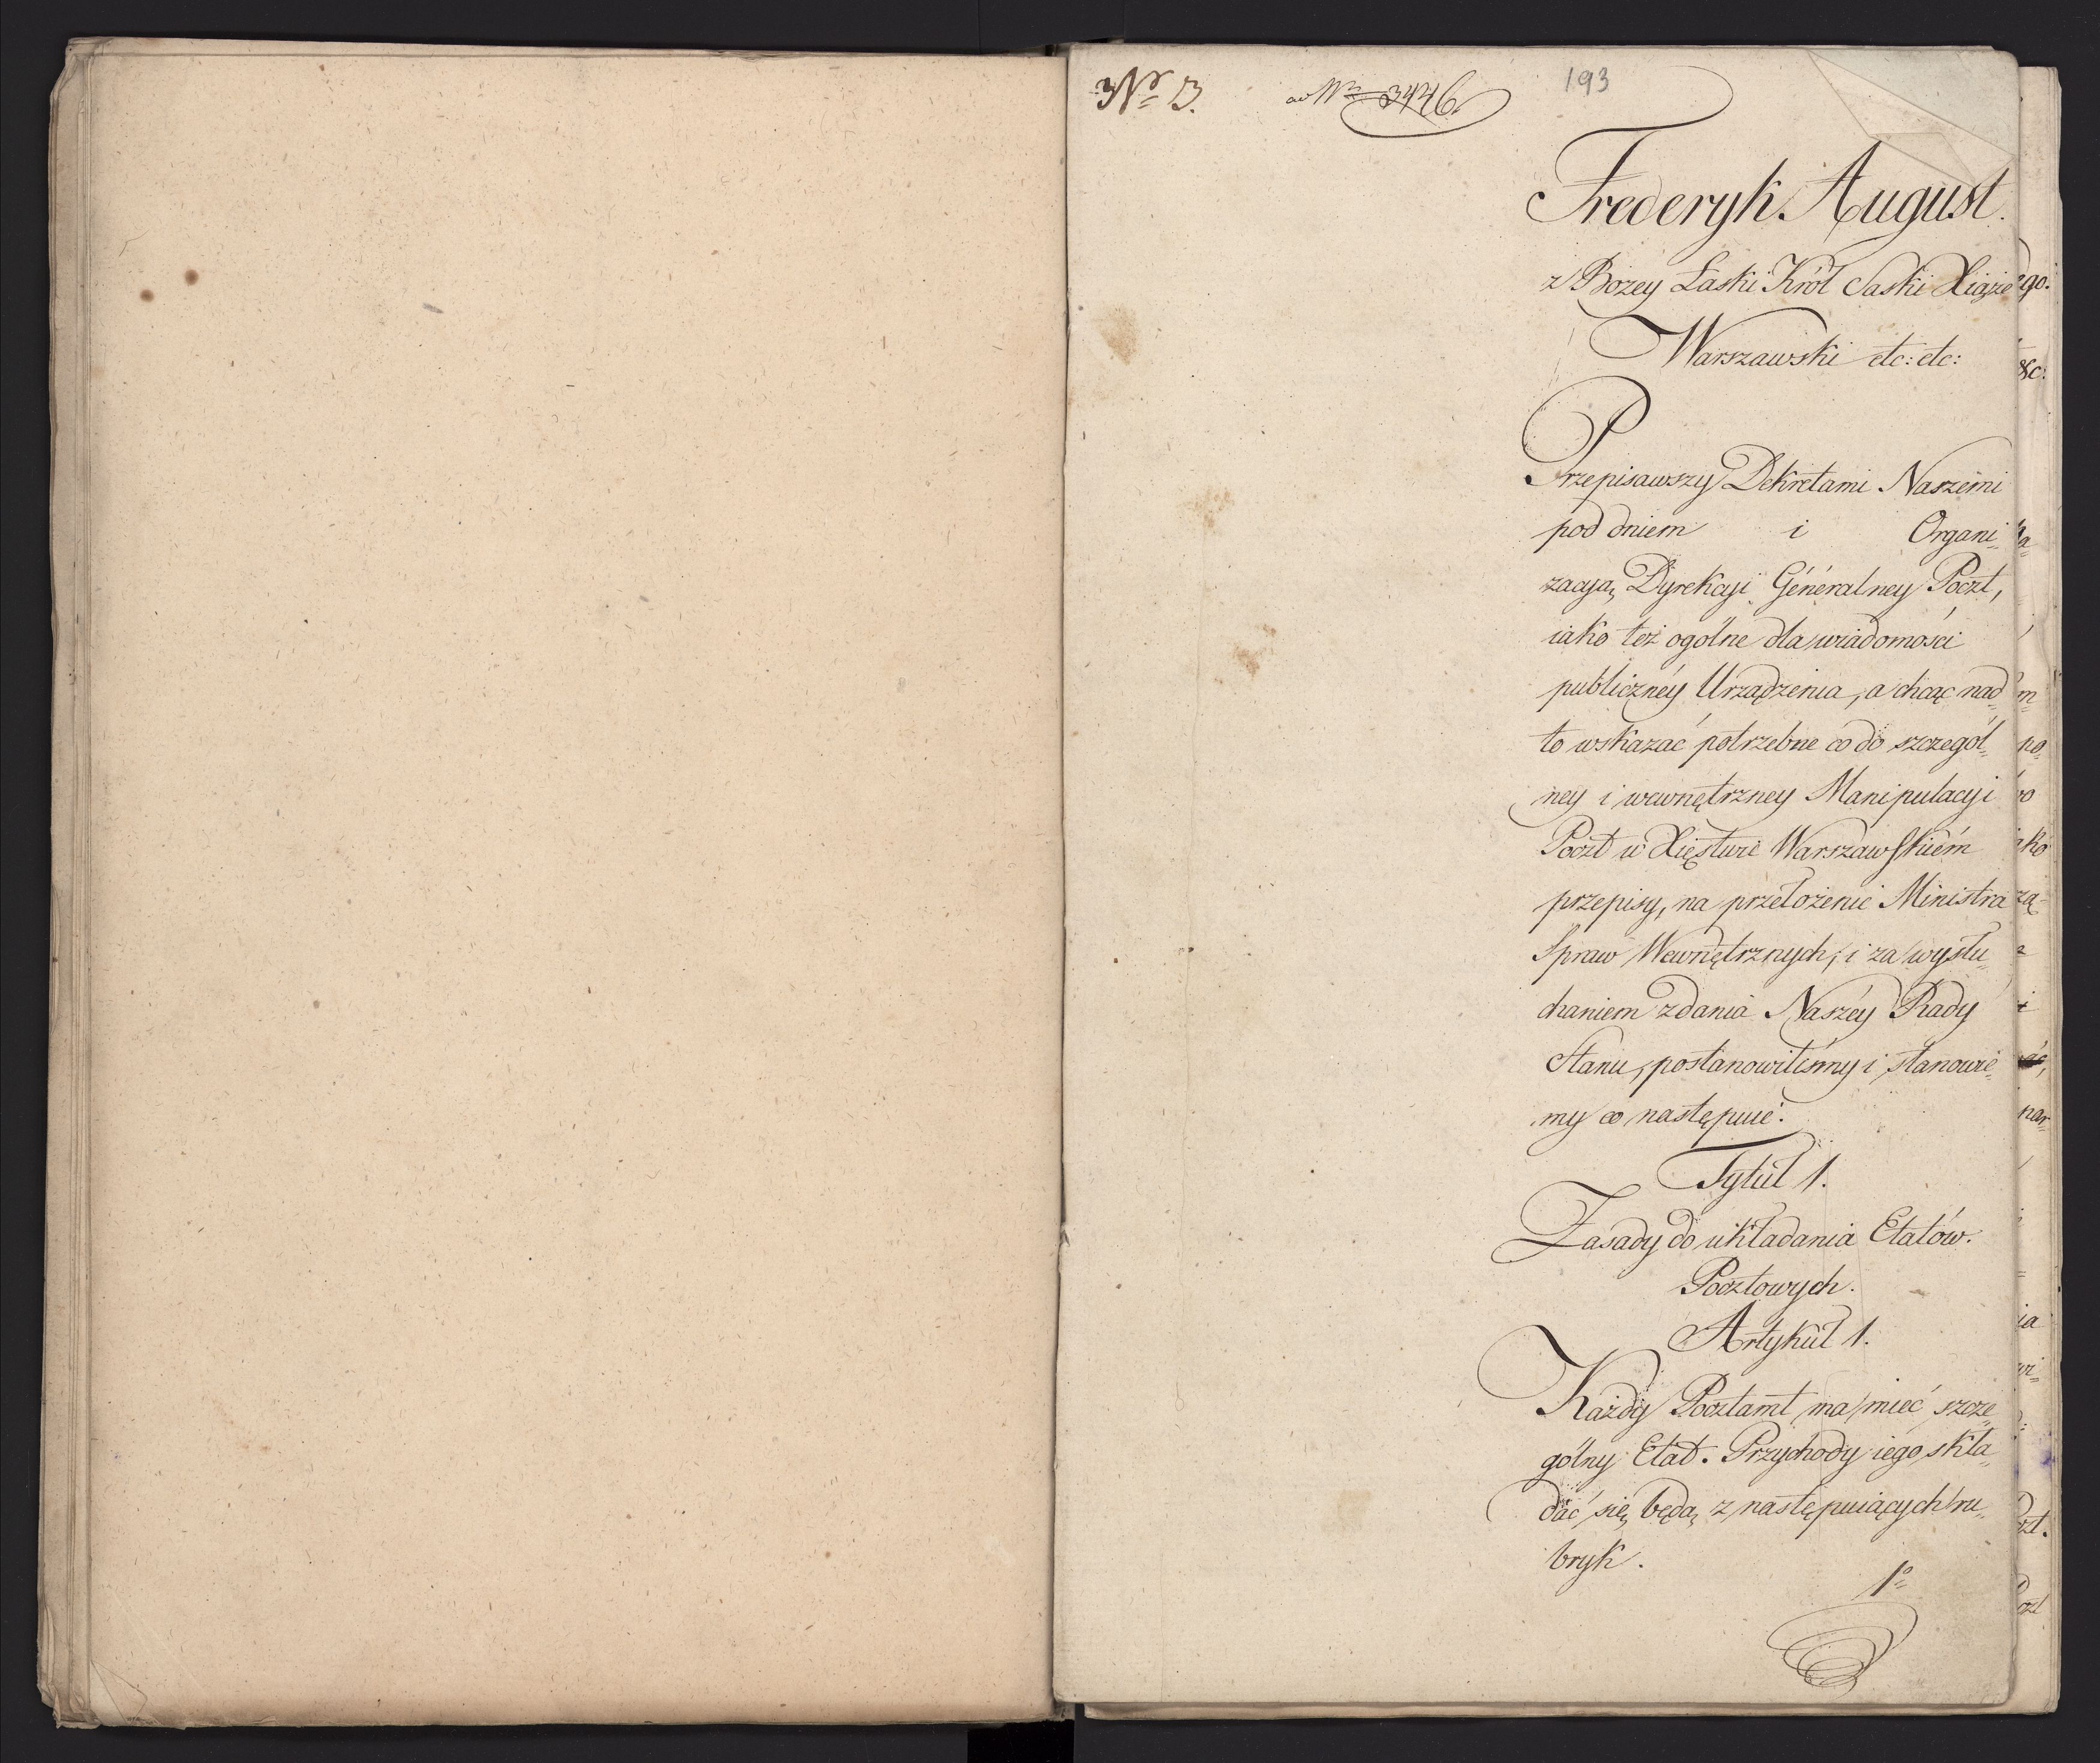 Nro 3.
ad Nro 3446.
193
Frederyk August.
z Bożey Łaski Król Saski Xiąże
Warszawski etc: etc:
Przepisawszy Dekretami Naszemi
pod dniem i Organi„
zacyą Dyrekcyi Géneralney Poczt,
iako też ogólne dla wiadomości
publiczney Urządzenia, a chcąc nad„
to wskazać potrzebne co do szczegól„
ney i wewnętrzney Manipulacyi
Poczt w Xięstwie Warszawskiém
przepisy, na przełożenie Ministra
Spraw Wewnętrznych, i za wysłu„
chaniem zdania Naszéy Rady
Stanu, postanowiliśmy i stanowie„
my co następuie:
Tytuł 1.
Zasady do układania Etatów.
Pocztowych.
Artykuł 1.
Każdy Pocztamt ma mieć szcze„
gólny Etat. Przychody iego skła„
dać się będą z następuiących ru„
bryk.
1o